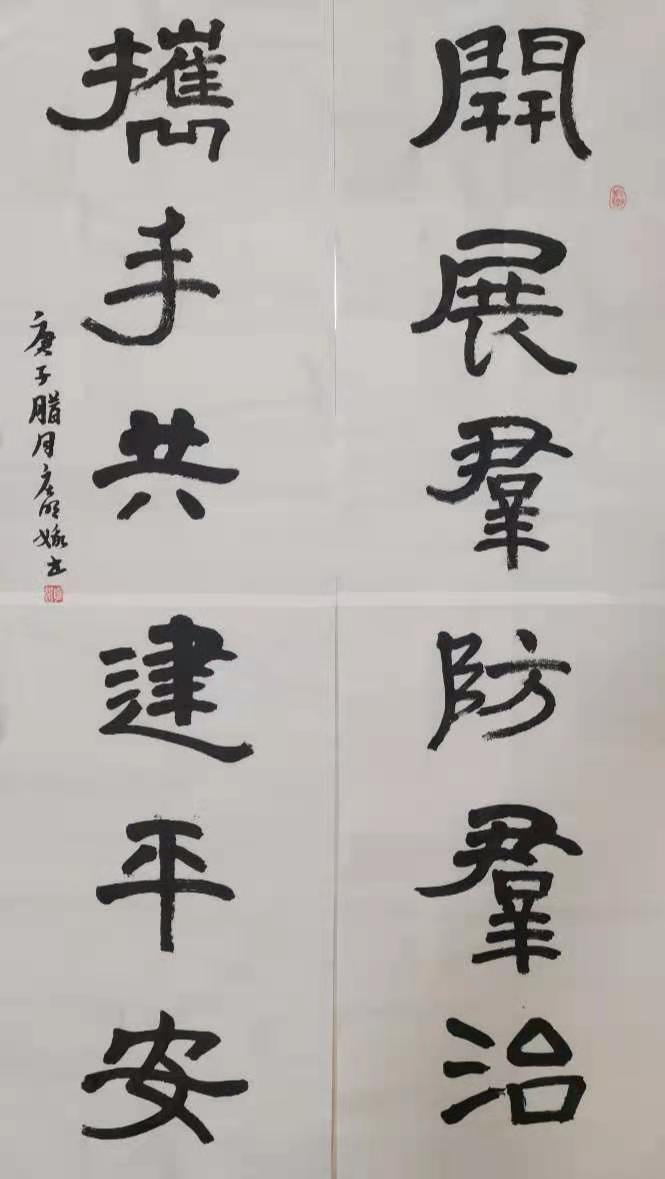 開展羣防羣治
攜手共建平安
庚子腊月